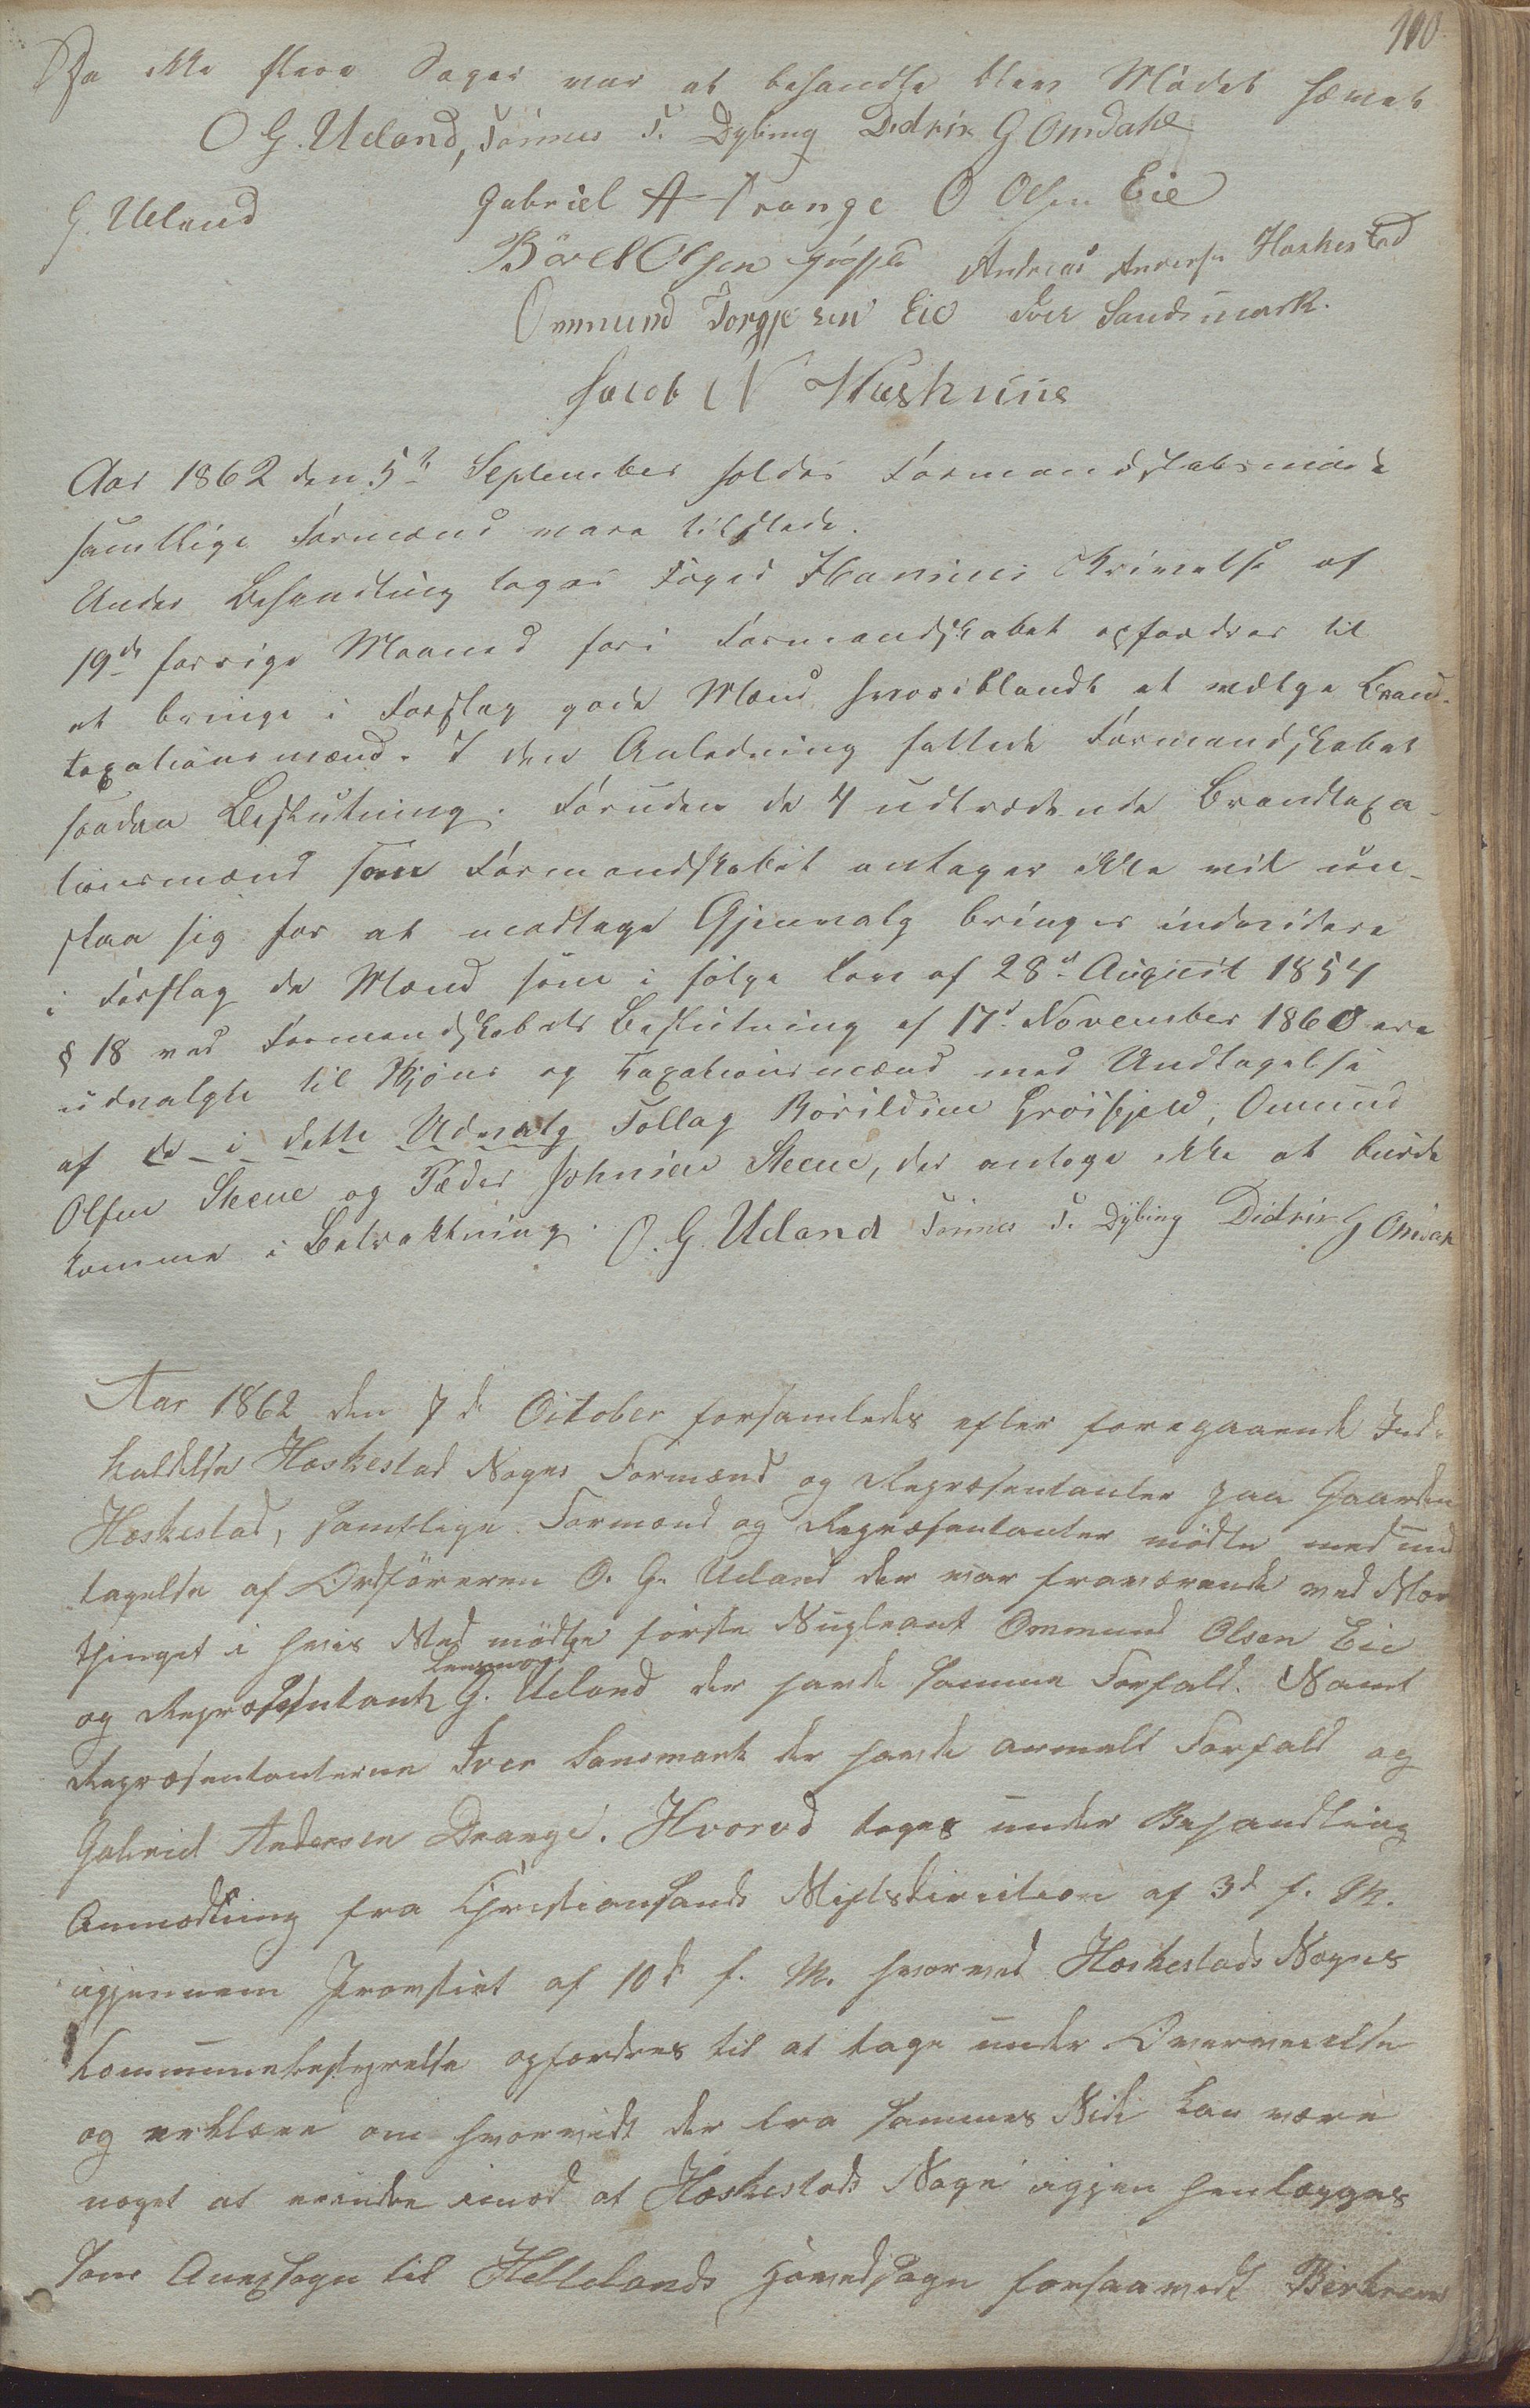 110.
Da ikke flere Sager var at behandle blev Mødet hævet
O G. Ueland, Tönnes T. Dybing Didrik G Omdahl
G. Ueland Gabriel A Drange O Olsen Eie
Börel Olsen Andreas Andersen Heskestad
Ommund Torgjersen Eie Iver Sandsmark.
Jacob N
Aar 1862 den 5te September holdes Formandskabsmøde
samtlige Formænd vare tilstede.
Under Behandling toges Foged Skrivelse af
19de forrige Maaned hvori Formandskabet opfordres til
at bringe i Forslag gode Mænd hvoriblandt at vælge Brand-
taxationsmænd. I den Anledning fattede Formandskabet
saadan Beslutning. Foruden de 4 udtrædende Brandtaxa-
tionsmænd som Formandskabet antager ikke vil und-
slaa sig for at modtage Gjenvalg bringes endvidere
i Forslag de Mænd som i følge Lov af 28de August 1854
§ 18 ved Formandskabets Beslutning af 17de November 1860 ere
udvalgte til Skjøns og Taxationsmænd med Undtagelse
af de i dette Udvalg Tollag Omund
Olsen Skeeie og Peder Johnsen Skeeie, der antoges ikke at burde
komme i Betraktning. O. G. Ueland Tönnes T. Dybing Didrik G Omdah
Aar 1862 den 7de October forsamledes efter foregaaende Ind-
kaldelse Heskestad Sogns Formænd og Repræsentanter paa Gaarden
Heskestad, samtlige Formænd og Repræsentanter mödte med und
tagelse af Ordföreren O. G. Ueland der var fraværende ved Stor
thinget i hvis Sted mödte förste Supleant Ommund Olsen Eie
og Repræsentant Lensmand G. Ueland der havde samme Forfald. Samt
Repræsentanterne Iver Sansmark der havde anmelt Forfald og
Gabriel Andersen Drange. Hvorved toges under Behandling
Anmodning fra Christiansands Stiftsdirection af 3d f. M.
igjennem Provstiet af 10d f. M. hvorved Heskestads Sognes
Kommunebestyrelse opfordres til at tage under Overveielse
og erklære om hvorvidt der fra sammes Side kan være
noget at erindre imod at Heskestads Sogn igjen henlægges
som Anexsogn til Hellelands Hovedsogn forsaavidt Birkrems